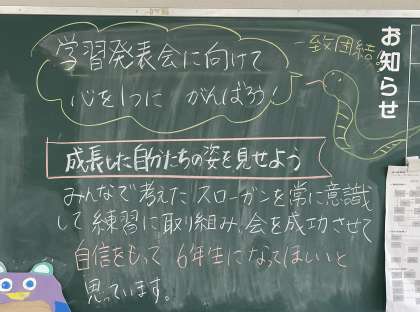 お知らせ
学習発表会に向けて
一致団結
心を1つに がんばろう!
成長した自分たちの姿を見せよう
みんなで考えた スローガンを常に意識
して 練習に取り組み、会を成功させて
自信をもって 6年生になってほしいと
思っています。